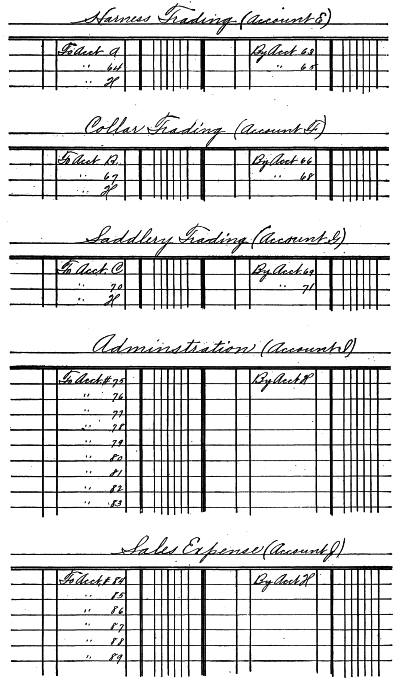 Harness Trading (Account E)
To Acct A By Acct 63
" 64 " 65
" H
Collar Trading (Account F)
To Acct B By Acct 66
" 67 " 68
" H
Saddlery Trading (Account G)
To Acct. C By Acct 69
" 70 " 71
" H
Adminstration (Account I)
To Acct.# 75 By Acct H
" 76
" 77
" 78
" 79
" 80
" 81
" 82
" 83
Sales Expense (Account J)
To Acct.# 84 By Acct H
" 85
" 86
" 87
" 88
" 89